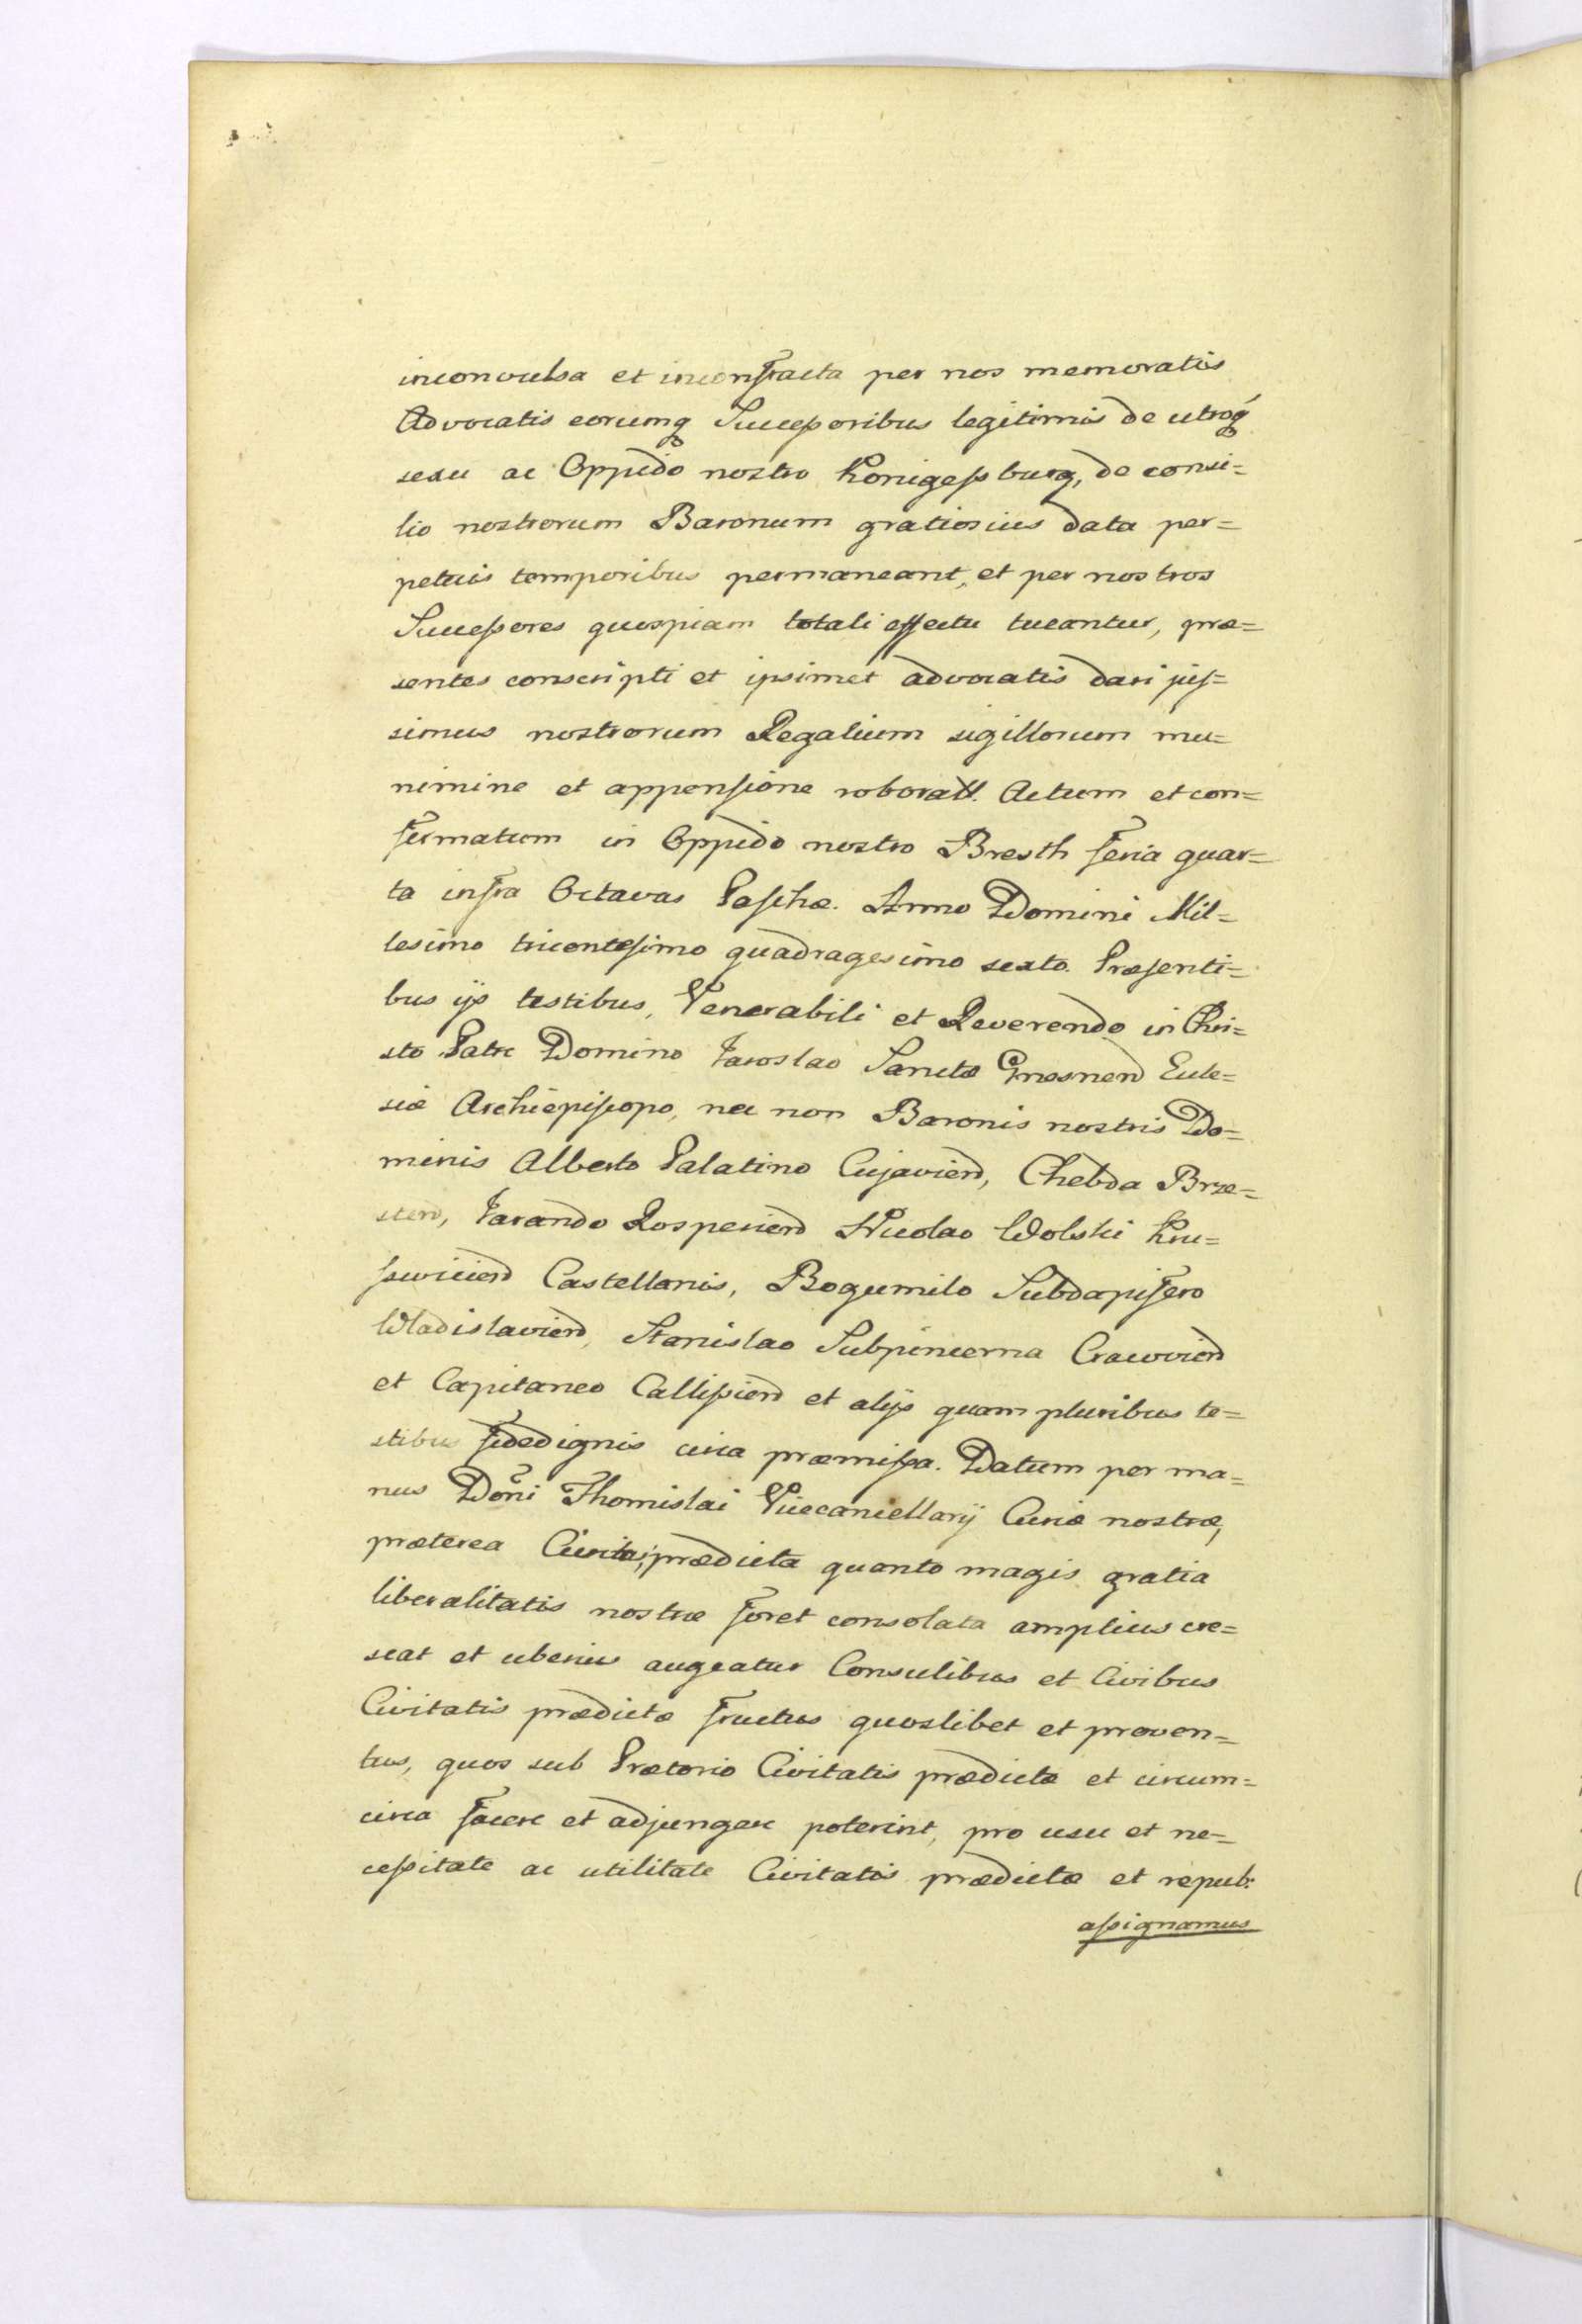 inconvulsa et inconfracta per nos memoratis
Advocatis eorumq Successoribus legitimis de utroq́
sexu ac Oppido nostro Konigessburg, de consi=
lio nostrorum Baronum gratiosius data per=
petuis temporibus permaneant, et per nostros
Successores quospiam totali effectu tueantur, præ=
sentes conscripti et ipsimet advocatis dari jus=
simus nostrorum Regalium sigillorum mu=
nimine et appensione roboratt. Actum et con=
firmatum in Oppido nostro Bresth feria quar=
ta infra Octavas Paschæ. Anno Domini Mil=
lesimo tricentesimo quadragesimo sexto. Præsenti=
bus ijs testibus, Venerabili et Reverendo in Chri=
sto Patre Domino Jaroslao Sanctæ Gnesnen Eccle=
siæ Archiepiscopo, nec non Baronis nostris Do=
minis Alberto Palatino Cujavien, Chebda Brze=
sten, Jarando Rosperien Nicolao Wolski Kru=
swicien Castellanis, Bogumilo Subdapifero
Wladislavien, Stanislao Subpincerna Cracovien
et Capitaneo Callissien et alijs quam pluribus te=
stibus fidedignis circa præmissa. Datum per ma=
nus Dom̃i Thomislai Vicecancellarij Curiæ nostræ,
præterea Civitas, prædicta quanto magis gratia
liberalitatis nostræ foret consolata amplius cre=
scat et uberius augeatur Consulibus et Civibus
Civitatis prædictæ fructus quoslibet et proven=
tus, quos sub Prætorio Civitatis prædictæ et circum=
circa facere et adjungere poterint, pro usu et ne=
cessitate ac utilitate Civitatis prædictæ et repub:
assignamus